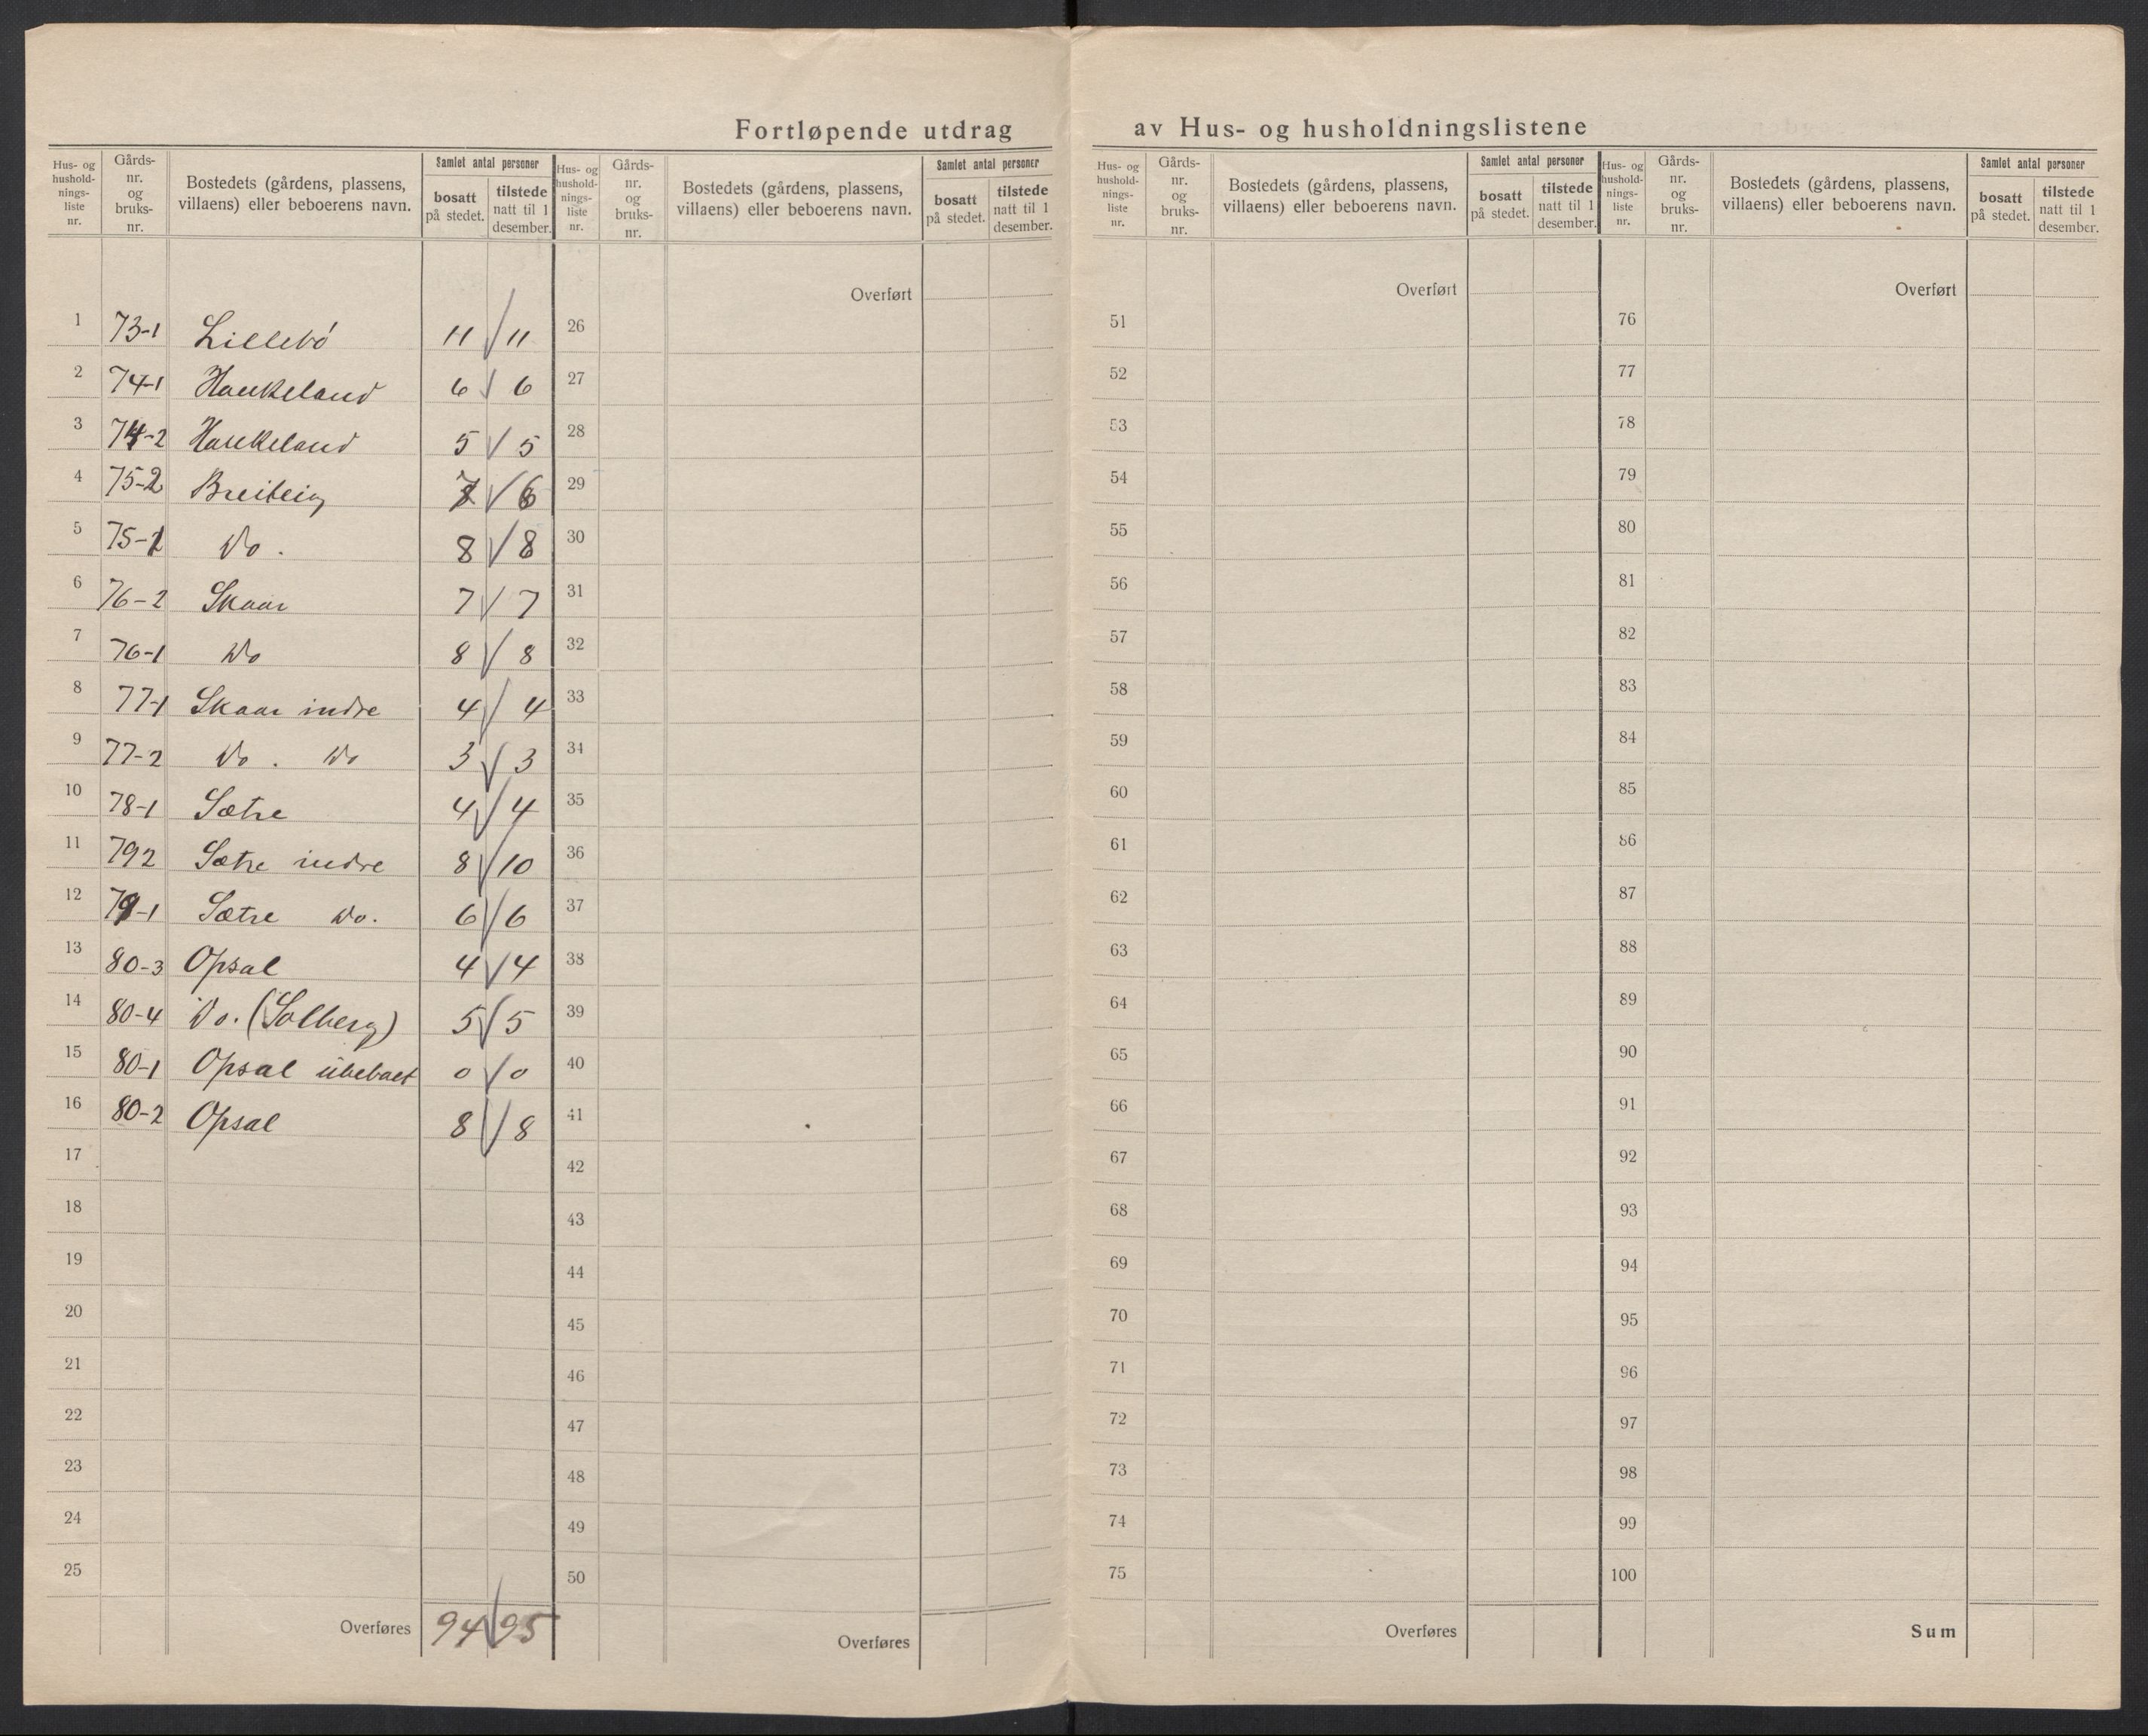 Fortløpende utdrag av Hus- og husholdningslistene
Hus- og husholdnings-liste nr. Gårds-nr. og bruks-nr. Bostedets (gårdens, plassens, villaens) eller beboerens navn. Samlet antal personer bosatt på stedet. tilstede natt til 1 desember.
1 73-1 Lillebö 11 11
2 74-1 Haukeland 6 6
3 74-2 Haukeland 5 5
4 75-2 Breiteig 7 6
5 75-1 Do. 8 8
6 76-2 Skaar 7 7
7 76-1 Do 8 8
8 77-1 Skaar indre 4 4
9 77-2 Do. Do 3 3
10 78-1 Sætre 4 4
11 792 Sætre indre 8 10
12 79-1 Sætre Do. 6 6
13 80-3 Opsal 4 4
14 80-4 Do. (Solberg) 5 5
15 80-1 Opsal ubebaet 0 0
16 80-2 Opsal 8 8
17
18
19
20
21
22
23
24
25
Overføres 94 95
Hus- og husholdnings-liste nr. Gårds-nr. og bruks-nr. Bostedets (gårdens, plassens, villaens) eller beboerens navn. Samlet antal personer bosatt på stedet. tilstede natt til 1 desember.
Overført
26
27
28
29
30
31
32
33
34
35
36
37
38
39
40
41
42
43
44
45
46
47
48
49
50
Overføres
Hus- og husholdnings-liste nr. Gårds-nr. og bruks-nr. Bostedets (gårdens, plassens, villaens) eller beboerens navn. Samlet antal personer bosatt på stedet. tilstede natt til 1 desember.
Overført
51
52
53
54
55
56
57
58
59
60
61
62
63
64
65
66
67
68
69
70
71
72
73
74
75
Overføres
Hus- og husholdnings-liste nr. Gårds-nr. og bruks-nr. Bostedets (gårdens, plassens, villaens) eller beboerens navn. Samlet antal personer bosatt på stedet. tilstede natt til 1 desember.
Overført
76
77
78
79
80
81
82
83
84
85
86
87
88
89
90
91
92
93
94
95
96
97
98
99
100
Sum